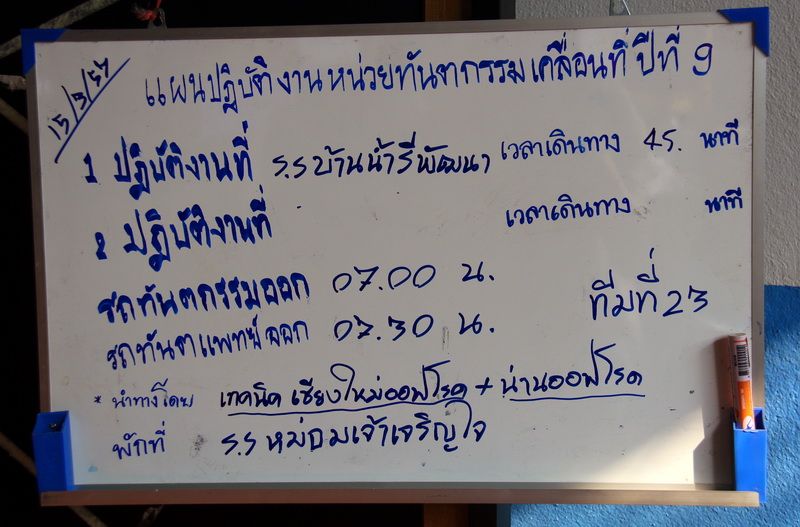 15/3/57
แผนปฏิบัติงานหน่วยทันตกรรมเคลื่อนที่ ปีที่ 9
1 ปฏิบัติงานที่ ร.ร บ้านน้ำรีพัฒนา เวลาเดินทาง 45. นาที
2 ปฏิบัติงานที่ เวลาเดินทาง นาที
รถทันตกรรมออก 07.00 น.
ทีมที่ 23
รถทันตแพทย์ออก 07.30 น.
* นำทางโดย เทคนิค เชียงใหม่ออฟโรด + น่านออฟโรด
พักที่ ร.ร หม่อมเจ้าเจริญใจ